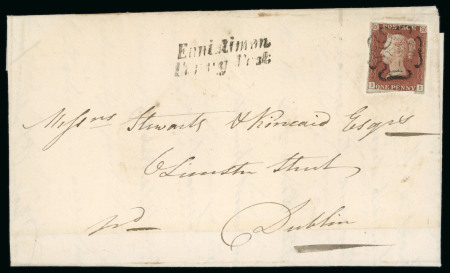 Ennistimon
Penny Post
POSTAGE
ONE PENNY
Messrs Stewarts & Kincaid Esqrs
6 Leinster Street
pd
Dublin